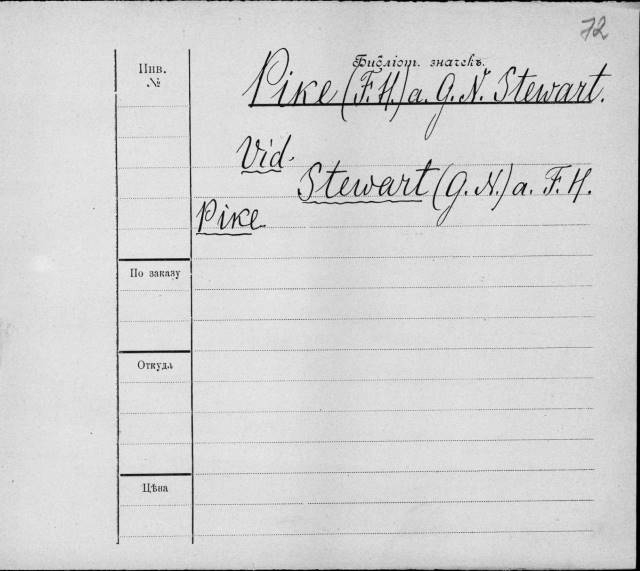 72
Инв.
№
Библіот. значекъ.
Pike (F. H.) a. G. N. Stewart.
Vid.
Stewart (G. N.) a. F. H.
Pike
По заказу
Откуда
Цѣна